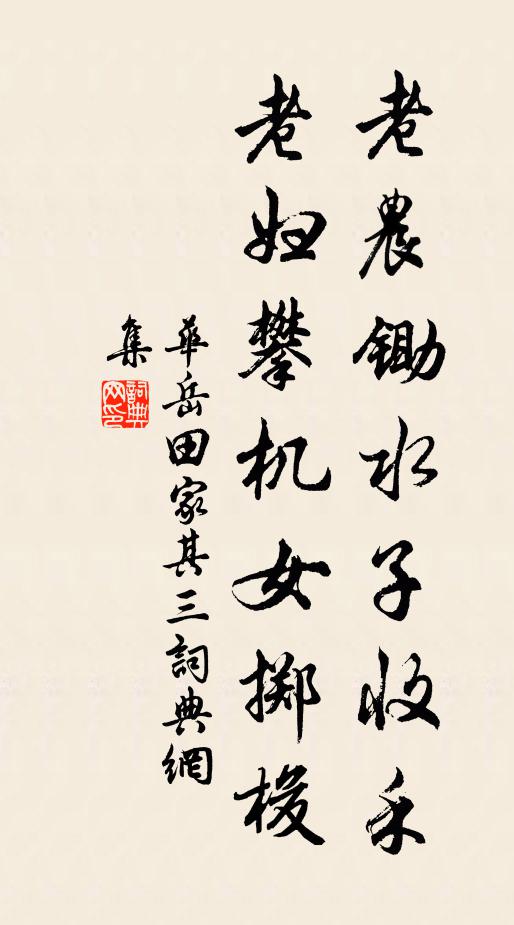 老農鋤水子收禾
老妇攀机女掷梭
華岳田家其三詞典網
集
詞典
网印